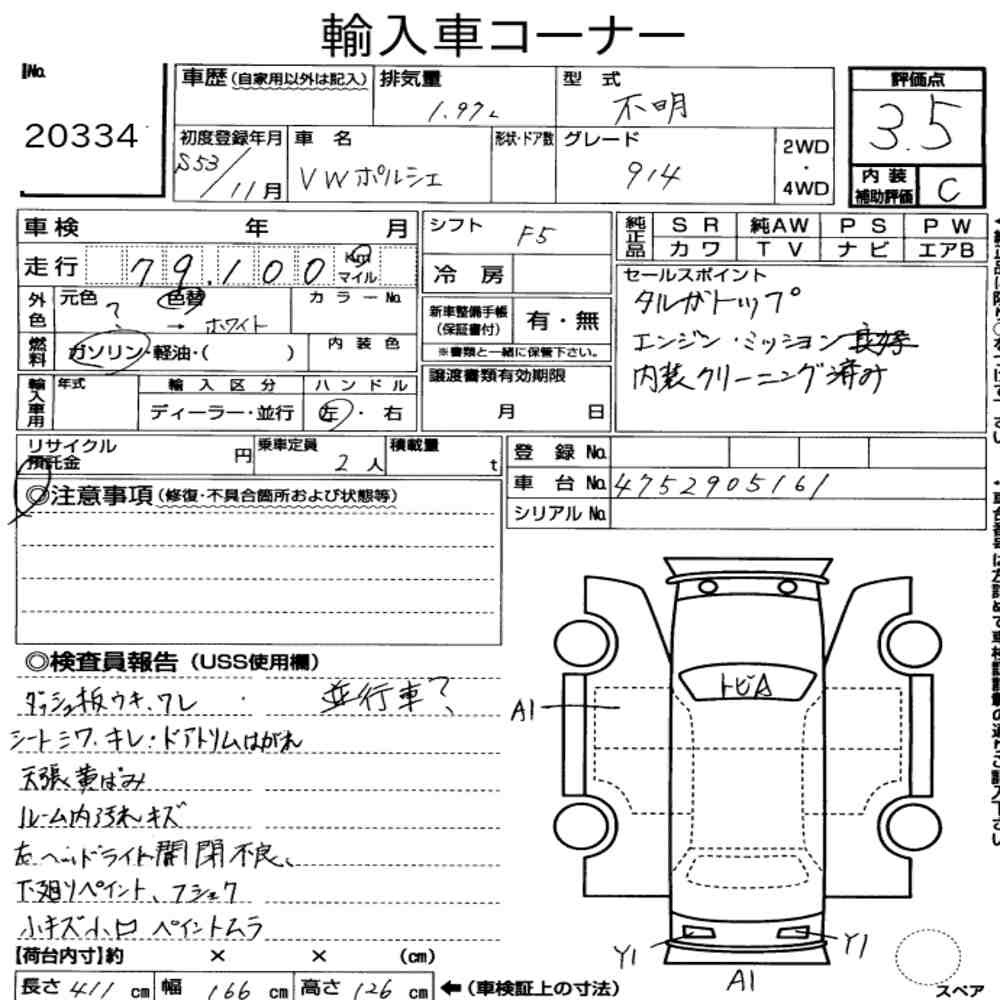 輸入車コーナー
No. 20334
車歴(自家用以外は記入) 排気量 1.97L 型式 不明
評価点 3.5
初度登録年月 S53/11月 車名 VWポルシェ 形状・ドア数 グレード 914 2WD・4WD
内装補助評価 C
車検 年 月 シフト F5
純正品 SR 純AW PS PW
カワ TV ナビ エアB
走行 79.100 Km マイル 冷房
セールスポイント
タルガトップ
エンジン・ミッション良好
内装クリーニング済み
外色 元色 ? 色替 → ホワイト カラーNo.
新車整備手帳(保証書付) 有・無
※書類と一緒に保管下さい。
燃料 ガソリン・軽油・( ) 内装色
譲渡書類有効期限 月 日
輸入車用 年式 輸入区分 ディーラー・並行 ハンドル 左・右
リサイクル預託金 円 乗車定員 2人 積載量 t
登録No.
車台No. 4752905161
シリアルNo.
◎注意事項(修復・不具合箇所および状態等)
◎検査員報告(USS使用欄)
ダッシュ板ウキ、ワレ 並行車?
シートシワ、キレ・ドアトリムはがれ
天張黄ばみ
ルーム内汚れキズ
左ヘッドライト開閉不良、
下廻りペイント、フショク
小キズ小凹 ペイントムラ
トビA
A1
Y1
Y1
A1
【荷台内寸】約 × × (cm)
長さ 411 cm 幅 166 cm 高さ 126 cm ←(車検証上の寸法)
スペア